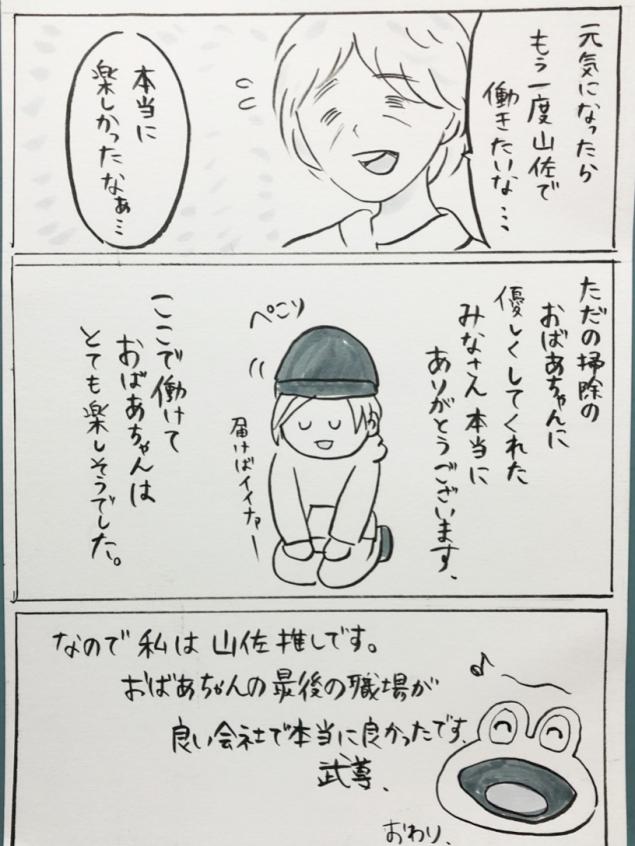 元気になったら
もう一度山佐で
働きたいな…
本当に
楽しかったなぁ…
ただの掃除の
おばあちゃんに
優しくしてくれた
みなさん本当に
ありがとうございます。
ぺこり
届けばイイナァー
ここで働けて
おばあちゃんは
とても楽しそうでした。
なので私は山佐推しです。
おばあちゃんの最後の職場が
良い会社で本当に良かったです。
武尊、
おわり、